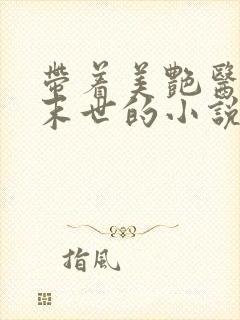 帶着美艷醫
末世的小說
指風